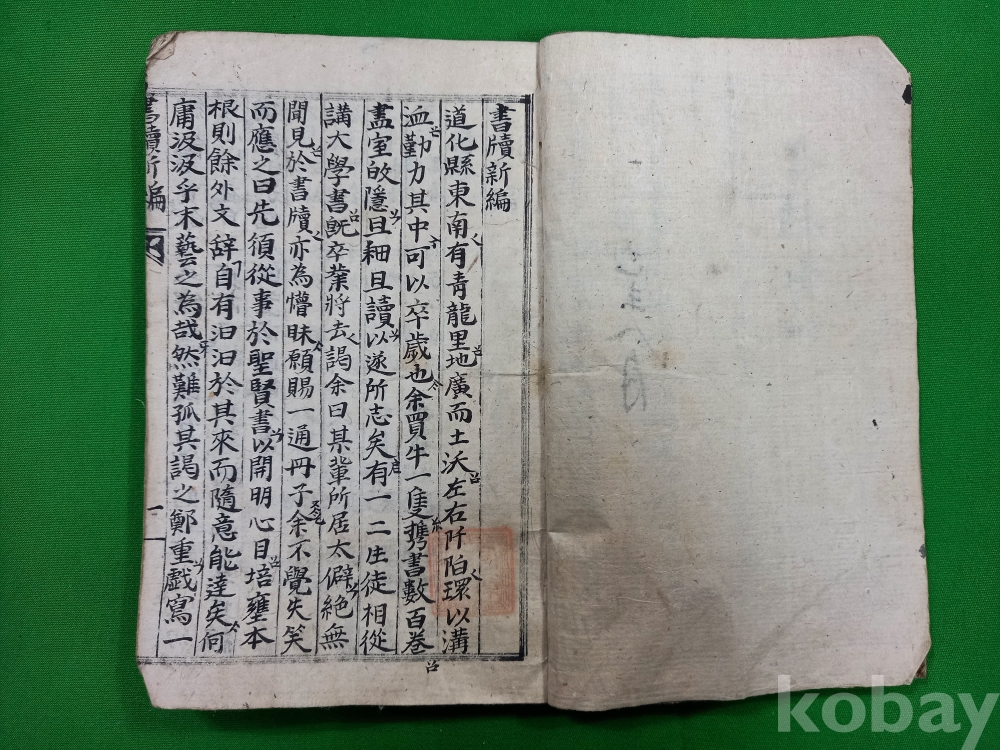 書牘新編
道化縣東南有青龍里地廣而土沃左右阡陌環以溝
洫勤力其中可以卒歲也余買牛一隻携書數百巻
盖室攸隱且耕且讀以遂所志矣有一二生徒相從
講大學書旣卒業將去謁余曰某輩所居太僻絶無
聞見於書牘亦為懵昧願賜一通冊子余不覺失笑
而應之曰先須從事於聖賢書以開明心目培壅本
根則餘外文辞自有汩汩於其來而隨意能達矣何
庸汲汲乎末藝之為哉然難孤其謁之鄭重戱寫一
書牘新編
一
kobay